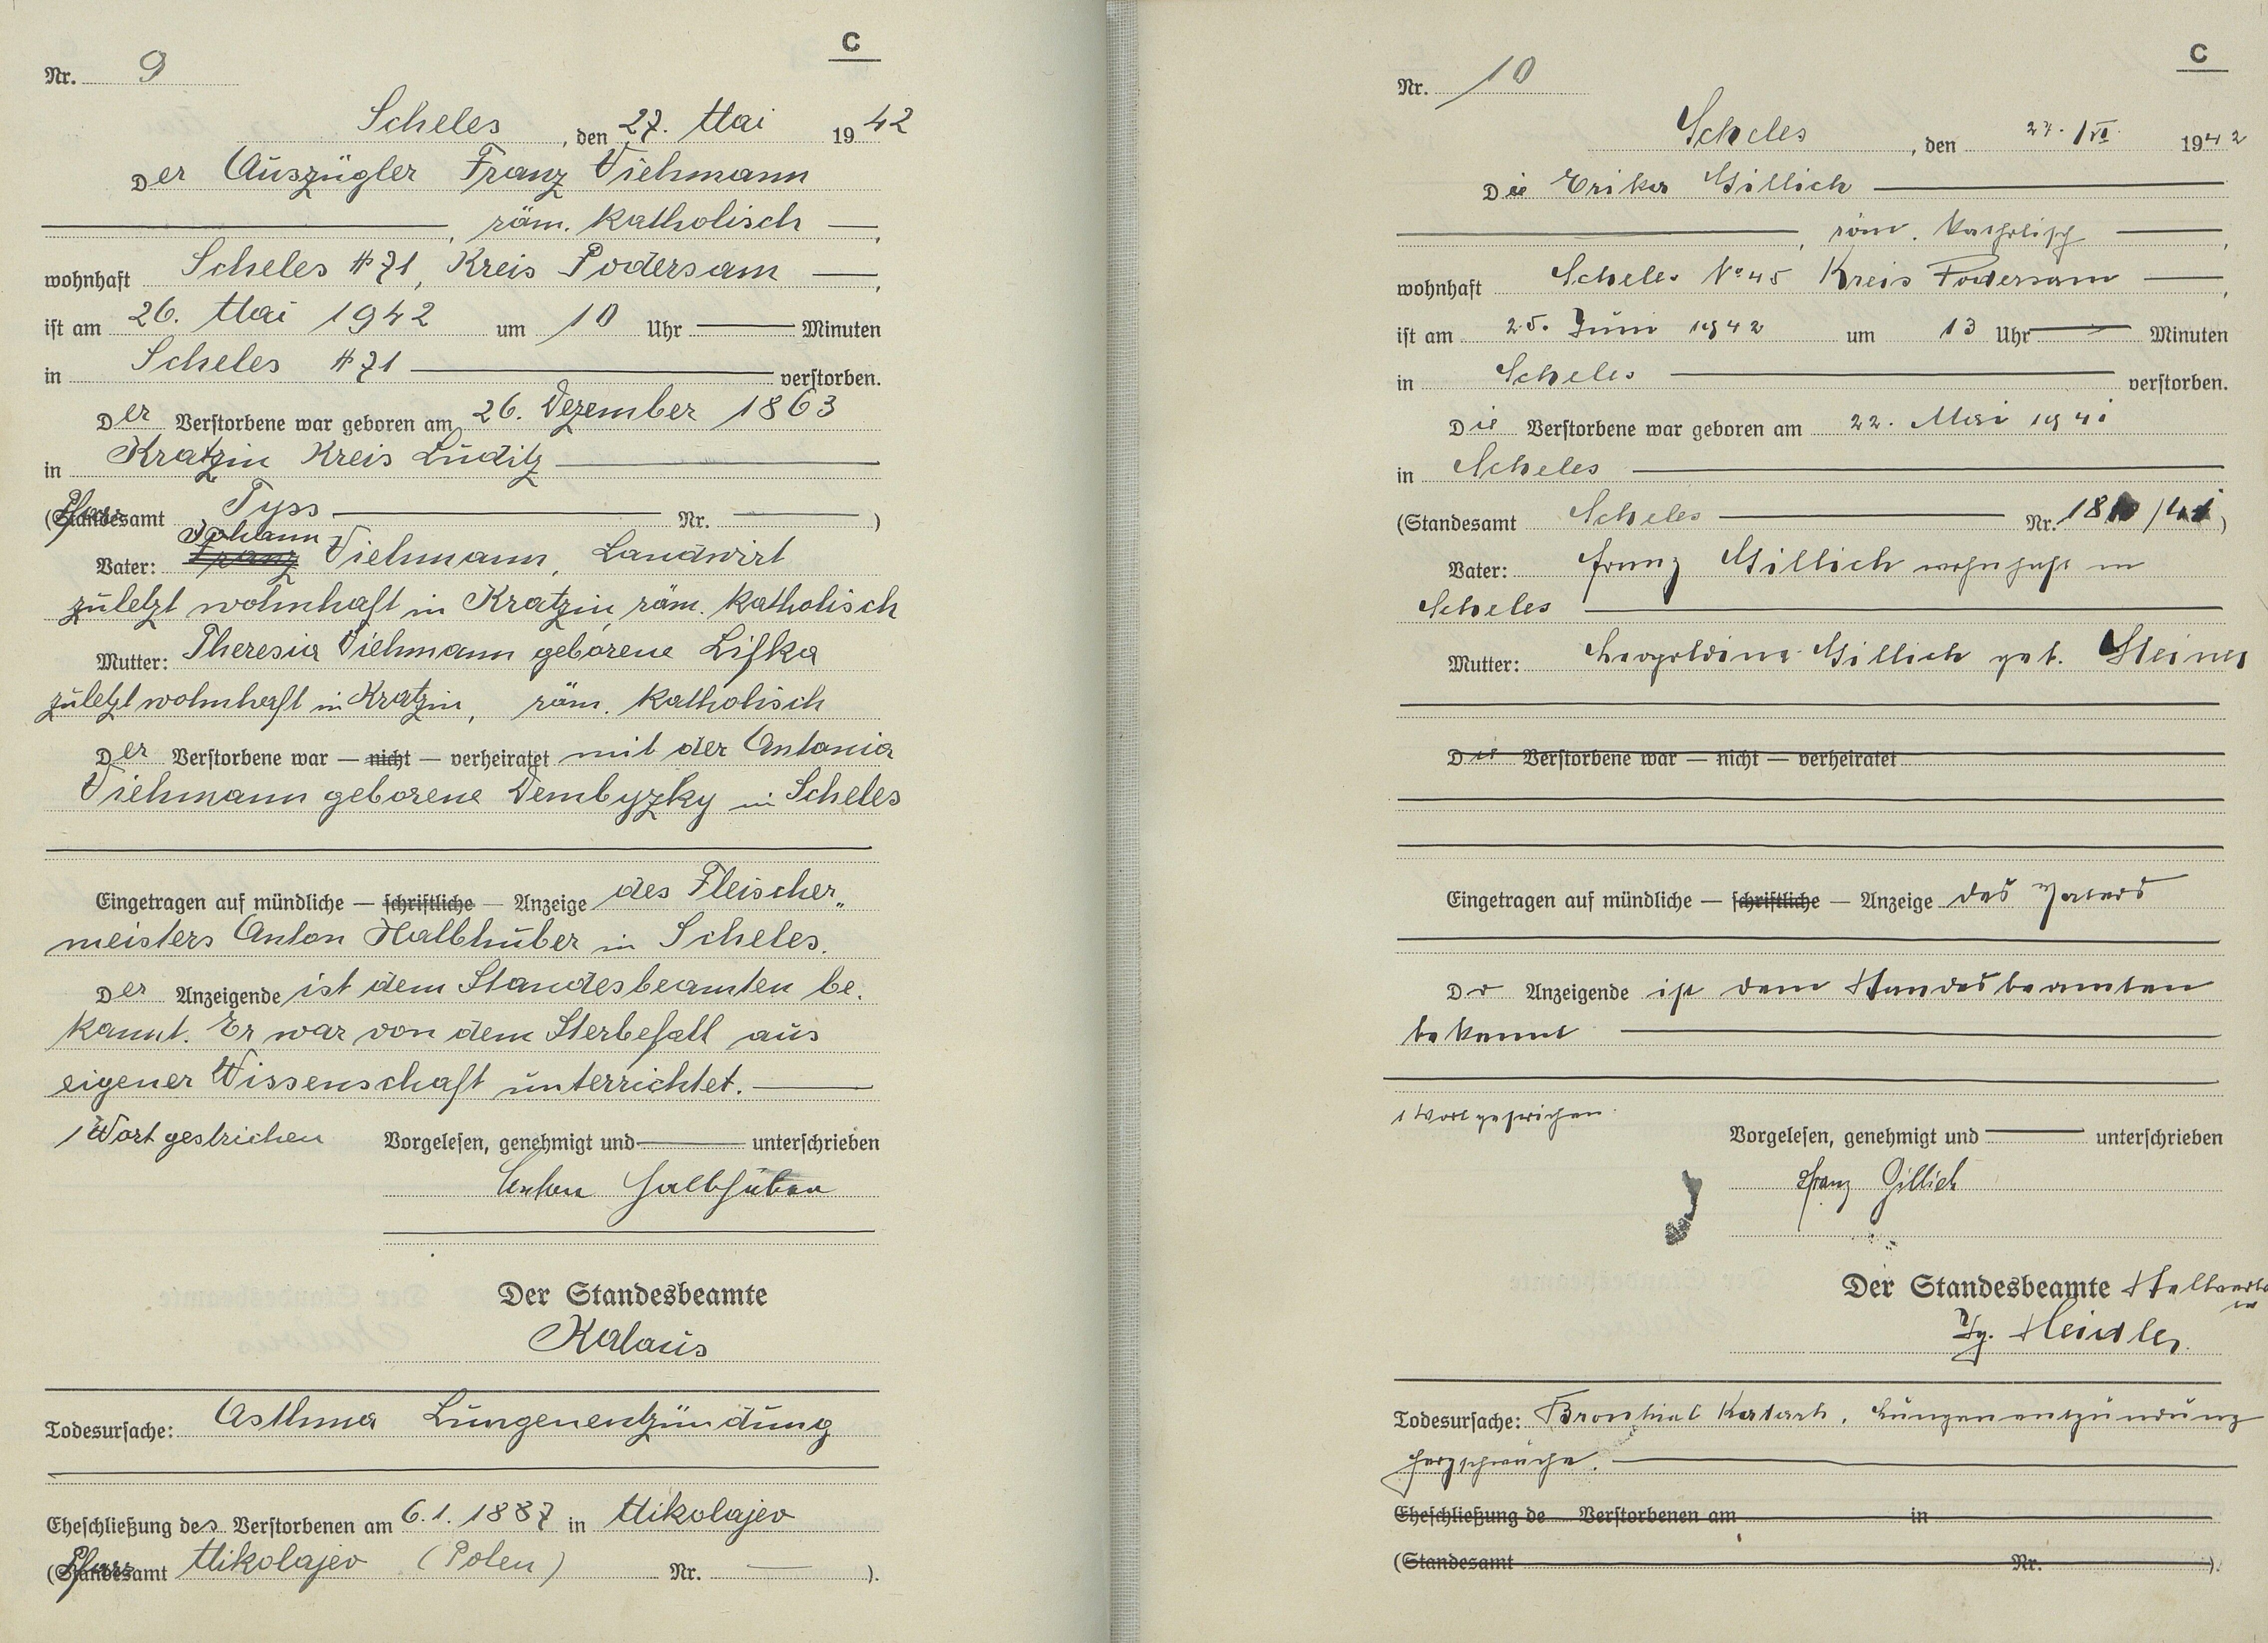 C
Nr. 9
Scheles, den 27. Mai 1942
Der Auszügler Franz Viehmann
, röm. katholisch,
wohnhaft Scheles #71, Kreis Podersam,
ist am 26. Mai 1942 um 10 Uhr Minuten
in Scheles #71 verstorben.
Der Verstorbene war geboren am 26. Dezember 1863
in Kratzin Kreis Luditz
(Pfarramt Tyss Nr. )
Johann
Vater: Franz Viehmann, Landwirt
zuletzt wohnhaft in Kratzin, röm. katholisch
Mutter: Theresia Viehmann geborene Lifka
zuletzt wohnhaft in Kratzin, röm. katholisch
Der Verstorbene war — nicht — verheiratet mit der Antonia
Viehmann geborene Dembyzky in Scheles
Eingetragen auf mündliche — schriftliche — Anzeige des Fleischer„
meisters Anton Halbhuber in Scheles.
Der Anzeigende ist dem Standesbeamten be.
kannt. Er war von dem Sterbefall aus
eigener Wissenschaft unterrichtet.
1 Wort gestrichen Vorgelesen, genehmigt und unterschrieben
Anton Halbhuber
Der Standesbeamte
Kalaus
Todesursache: Asthma Lungenentzündung
Eheschließung des Verstorbenen am 6.1.1887 in Mikolajev
(Pfarramt Mikolajev (Polen) Nr. ).
C
Nr. 10
Scheles, den 27. VI. 1942
Die Erika Gillich
, röm. katholisch,
wohnhaft Scheles No 45 Kreis Podersam,
ist am 25. Juni 1942 um 13 Uhr Minuten
in Scheles verstorben.
Die Verstorbene war geboren am 22. Mai 1941
in Scheles
(Standesamt Scheles Nr. /41)
Vater: Franz Gillich wohnhaft in
Scheles
Mutter: Leopoldine Gillich geb. Steiner
Die Verstorbene war — nicht — verheiratet
Eingetragen auf mündliche — schriftliche — Anzeige des Vaters
Der Anzeigende ist dem Standesbeamten
bekannt
1 Wort gestrichen.
Vorgelesen, genehmigt und unterschrieben
Franz Gillich
Der Standesbeamte
Todesursache: Bronchial Katarh, Lungenentzündung
Herzschwäche.
Eheschließung de Verstorbenen am in
(Standesamt Nr. ).